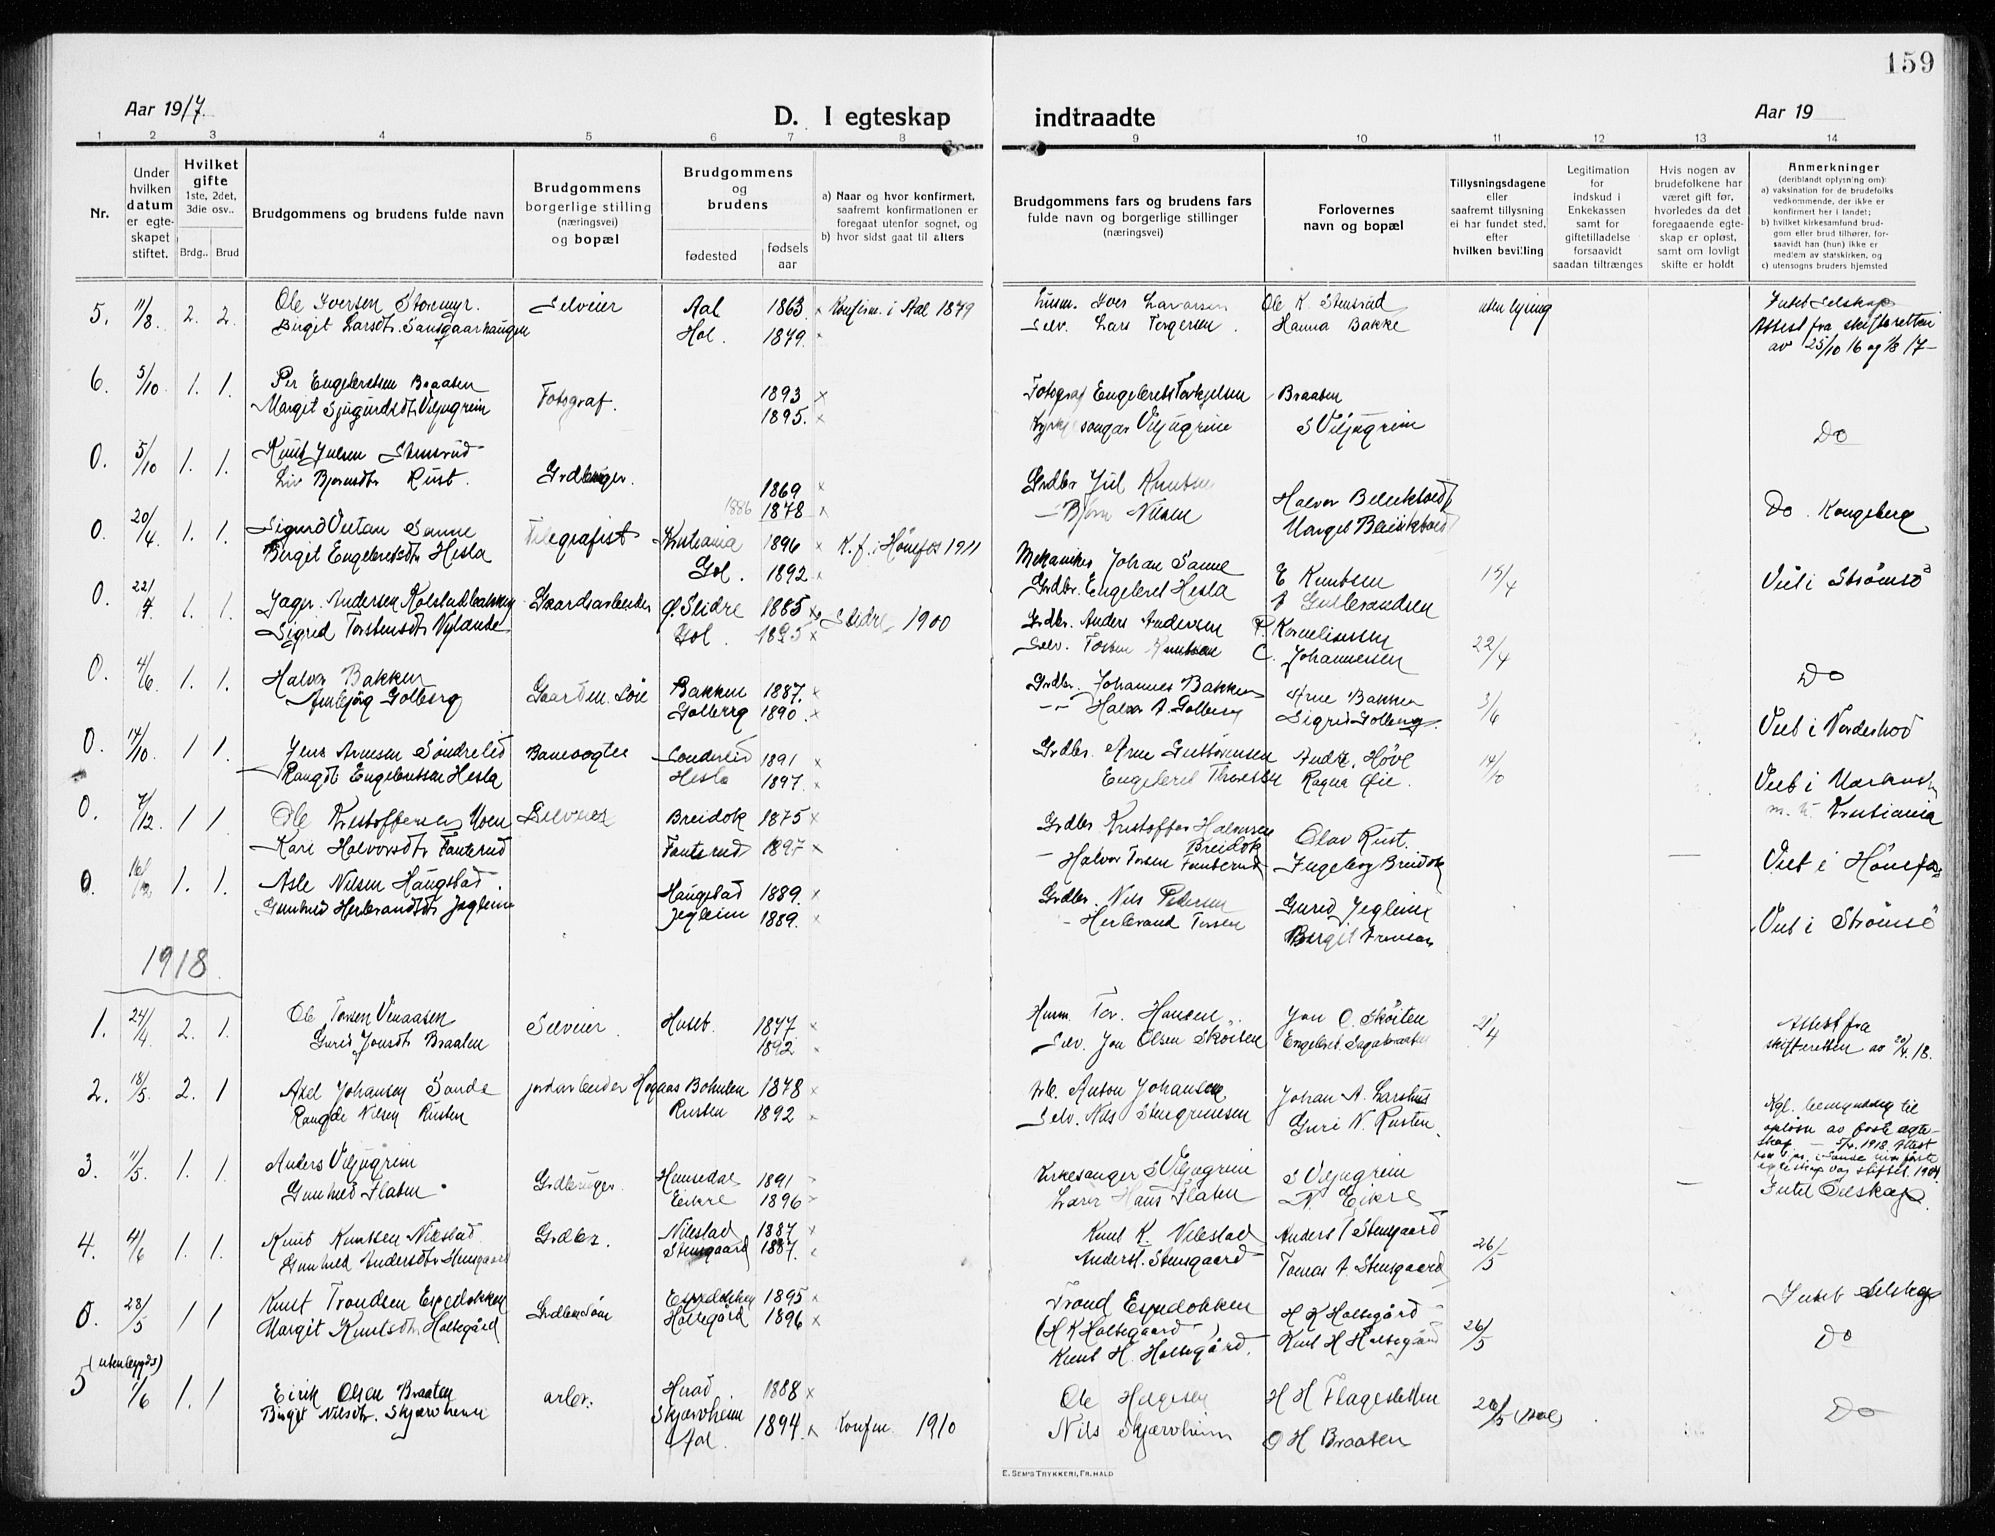 159
Aar 1917.
D. I egteskap indtraadte
Aar 19
1 2 3 4 5 6 7 8 9 10 11 12 13 14
Nr.
Under hvilken datum er egteskapet stiftet.
Hvilket gifte 1ste, 2det, 3die osv..
Brdg.. Brud
Brudgommens og brudens fulde navn
Brudgommens borgerlige stilling (næringsvei) og bopæl
Brudgommens og brudens
fødested
fødsels aar
a) Naar og hvor konfirmert, saafremt konfirmationen er foregaat utenfor sognet, og
b) hvor sidst gaat til alters
Brudgommens fars og brudens fars fulde navn og borgerlige stillinger (næringsvei)
Forlovernes navn og bopæl
Tillysningsdagene eller saafremt tillysning ei har fundet sted, efter hvilken bevilling
Legitimation for indskud i Enkekassen samt for giftetilladelse forsaavidt saadan tiltrænges
Hvis nogen av brudefolkene har været gift før, hvorledes da det foregaaende egteskap er opløst, samt om lovlig skifte er holdt
Anmerkninger (deriblandt oplysning om):
a) vaksination for de brudefolks vedkommende, der ikke er konfirmert her i landet;
b) hvilket kirkesamfund brudgom eller brud tilhører, forsaavidt han (hun) ikke er medlem av statskirken, og
c) utensogns bruders hjemsted
5. 11/8 2. 2. Ole Iversen Storemyr. Selveier Aal 1863 x Konfirm. i Aal 1879 Ole K. Stensrud uten lysing Intet Selskap
Birgit Larsdt. Hol. 1879. Selv. Lars Torgersen. Hanna Bakke Attest fra skifteretten
av 25/10 16 og
6. 5/10 1. 1. Per Engebretsen Braaten Fotograf. 1893 x Fotograf Engebret Torkjelsen Braaten
Margit Sjugurdsdt. Viljugrein 1895. x Viljugrein S Viljugrein Do
0. 5/10 1. 1. Knut Juelsen Stensrud Grdbruger. 1869 x Grdbr. Juel Knutsen Halvor
Liv Bjørnsdt. Rust. 1886 1878 x — Bjørn Nilsen Margit Do. Kongsberg
0. 20/4 1. 1. Sigurd Sanne Telegrafist Kristiania 1896 x K. f. i Hønefos 1911 Mekaniker Johan Sanne E Knutsen 15/4 Viet i Strømsø
Birgit Engebretsdt. Hesla Gol. 1892 x Grdbr. Engebret Hesla A Gulbrandsen
0. 22/4 1. 1. Andersen Gaardsarbeider Ø. Slidre 1885 x Slidre 1900 Grdbr. Anders Andersen P. Kornelinssen 22/4
Sigrid Torstensdt. Nylande Gol. x Selv. Torsten Knutsen C. Johannesen Do
0. 4/6 1. 1. Halvor Bakken Bakken 1887. x Grdbr. Johannes Bakken Arne Bakken 3/6
Ambjørg Golberg Golberg 1890. x Halvor A. Golberg Sigrid Golberg. Viet i Norderhov
0. 14/10 1 1 Jens Arnesen Søndrelid Banevogter 1891 x Grdbr. Arne Guttormsen Andr. Høvl 14/10
Rangdi Engebretsen Hesla Hesla 1897. x Engebret Thoresen Ragna Øie. Viet i
m. h. Kristiania
0. 7/12 1 1 Ole Kristoffersen Moen Selveier Breidok 1875 x Grdbr. Kristoffer Halvorsen Breidok Olav Rust.
Kari Halvorsdt. Fanterud Fanterud 1897 x — Halvor Torsen Fanterud Ingeborg Breidok — Viet i Hønefos
0. 16/12 1. 1. Asle Nilsen Haugstad. Haugstad 1889. x Grdbr. Nils Pedersen Gurid Jegleim
Gunhild Herbrandsdt. Jegleim Jegleim 1889. — Herbrand Torsen Birgit Viet i Strømsø
1918
1. 24/4 2. 1. Ole Torsen Venaasen Selveier. Huset. 1877 x Husm. Tor. Hansen Jon O. Skøiten 21/4 Attest fra
Gurid Jonsdt. Braaten 1892 x Selv. Jon Olsen Skøiten Engebret skifteretten av 20/4. 18.
2. 18/5. 2. 1 Axel Johansen Sande jordarbeider 1878 x Anton Johansen Johan A. Larshus
Rangdi Nilsen Rusten Rusten 1892 x Selv. Nils Stengrimsen Guri N. Rusten.
3. 11/5 1. 1. Anders Viljugrein Grdbruger Hemsedal 1891 Kirkesanger S Viljugrein S Viljugrein
Gunhild Flaten. Eikre 1896 x Lærer Hans Flaten N. Eikre — Intet Selskap.
4. 4/6 1. 1. Knut Knutsen Nibstad Grdbr. Nibstad 1887 x Knut K. Nibstad Anders Stensgaard 26/5
Gunhild Andersdt. Stensgaard 1887. Anders Stensgaard Tomas A. Stensgaard
Intet Selskap
0. 28/5 1 1 Knut Trondsen Espedokken 1895 x Trond Espedokken H K Holtegård 26/5
Margit Knutsdt. Holtegård Holtegård 1896 x (H K Holtegaard) Knut H Holtegård Do
Knut H. Holtegård.
5 (utenbygds) 1/6 1. 1 Eirik Olsen Braaten arbr. Herad 1888 x Ole Helgesen H H Flagesletten 26/5 (Aal)
Birgit Nilsdt. Skjærvheim Skjærvheim Aal. 1894 x Konfm. 1910 Nils Skjærvheim O H Braaten Do
E. SEM'S TRYKKERI, FR.HALD